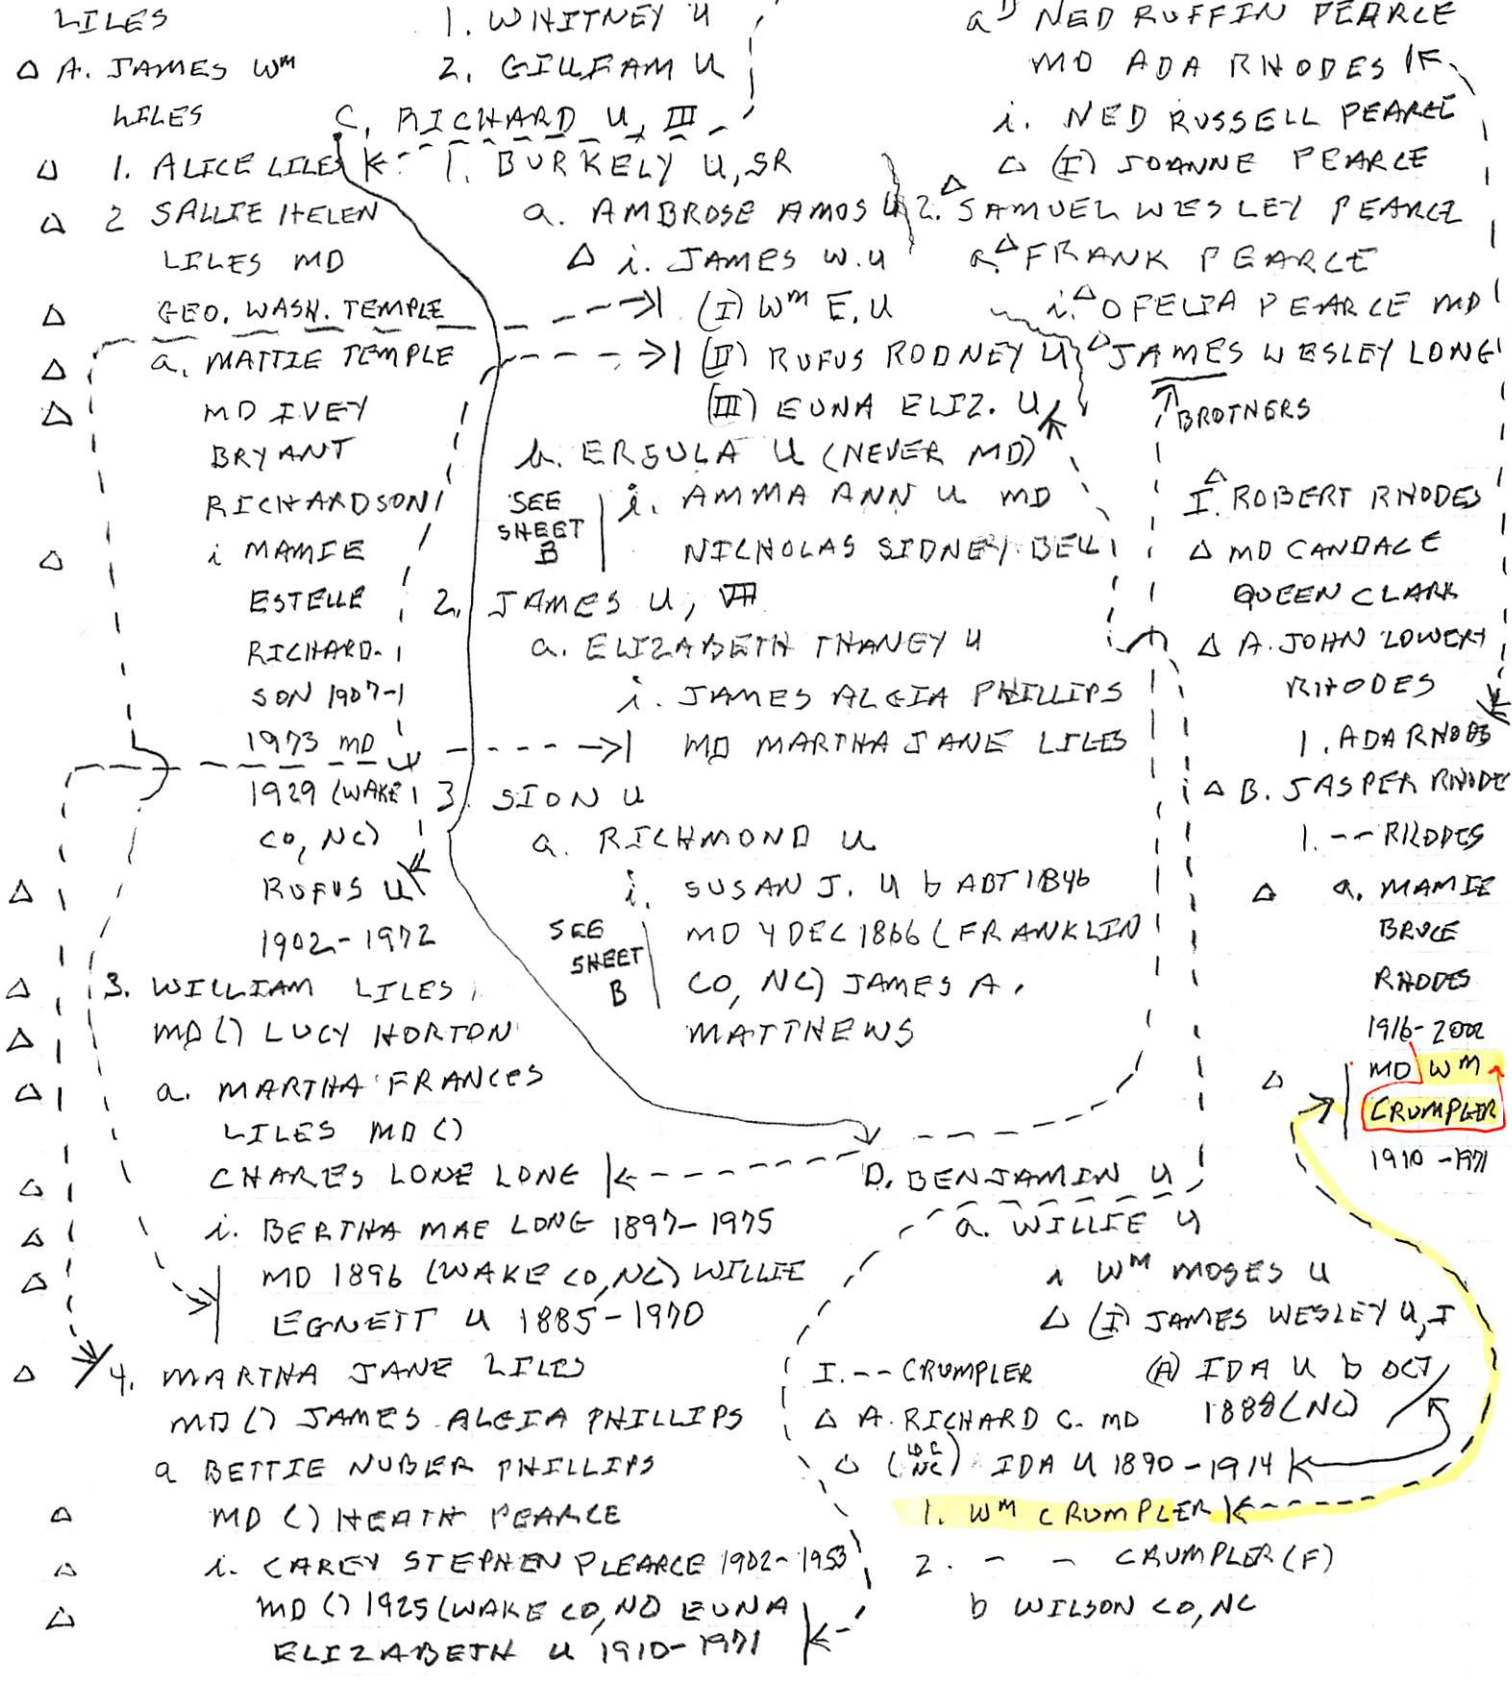 LILES
Δ A. JAMES Wᵐ
LILES
Δ 1. ALICE LILES
Δ 2 SALLIE HELEN
LILES MD
Δ GEO. WASH. TEMPLE
Δ a. MATTIE TEMPLE
Δ MD IVEY
BRYANT
RICHARDSON
Δ i MAMIE
ESTELLE
RICHARD-
SON 1907-
1973 MD
1929 (WAKE
CO, NC)
Δ RUFUS U
1902-1972
Δ 3. WILLIAM LILES
Δ MD () LUCY HORTON
Δ a. MARTHA FRANCES
LILES MD ()
Δ CHARLES LONE LONG
Δ i. BERTHA MAE LONG 1897-1975
Δ MD 1896 (WAKE CO, NC) WILLIE
EGNETT U 1885-1970
Δ 4. MARTHA JANE LILES
MD () JAMES ALGIA PHILLIPS
a BETTIE NUBER PHILLIPS
Δ MD () HEATH PEARCE
Δ i. CAREY STEPHEN PLEARCE 1902-1953
Δ MD () 1925 (WAKE CO, NC) EUNA
ELIZABETH U 1910-1971
1. WHITNEY U
2. GILLFAM U
C. RICHARD U, III
1. BURKELY U, SR
a. AMBROSE AMOS U
Δ i. JAMES W. U
(I) Wᵐ E. U
(II) RUFUS RODNEY U
(III) EUNA ELIZ. U
b. ERSULA U (NEVER MD)
SEE
SHEET
B
i. AMMA ANN U MD
NICHOLAS SIDNEY BELL
2. JAMES U, VII
a. ELIZABETH THANEY U
i. JAMES ALGIA PHILLIPS
MD MARTHA JANE LILES
3. SION U
a. RICHMOND U
i. SUSAN J. U b ABT 1846
SEE
SHEET
B
MD 4 DEC 1866 (FRANKLIN
CO, NC) JAMES A.
MATTHEWS
D. BENJAMIN U
a. WILLIE U
i Wᵐ MOSES U
Δ (I) JAMES WESLEY U, I
(A) IDA U b OCT
1888 (NC)
I. -- CRUMPLER
Δ A. RICHARD C. MD
Δ (NC) IDA U 1890-1914
1. Wᵐ CRUMPLER
2. - - CRUMPLER (F)
b WILSON CO, NC
a NED RUFFIN PEARCE
MD ADA RHODES
i. NED RUSSELL PEARCE
Δ (I) JOANNE PEARCE
Δ 2. SAMUEL WESLEY PEARCE
a. Δ FRANK PEARCE
i. Δ OFELIA PEARCE MD
Δ JAMES WESLEY LONG
BROTHERS
Δ
I. ROBERT RHODES
Δ MD CANDACE
QUEEN CLARK
Δ A. JOHN LOWERY
RHODES
1. ADA RHODES
Δ B. JASPER RHODE
1. -- RHODES
Δ a. MAMIE
BRUCE
RHODES
1916-2002
Δ MD Wᵐ
CRUMPLER
1910-1971